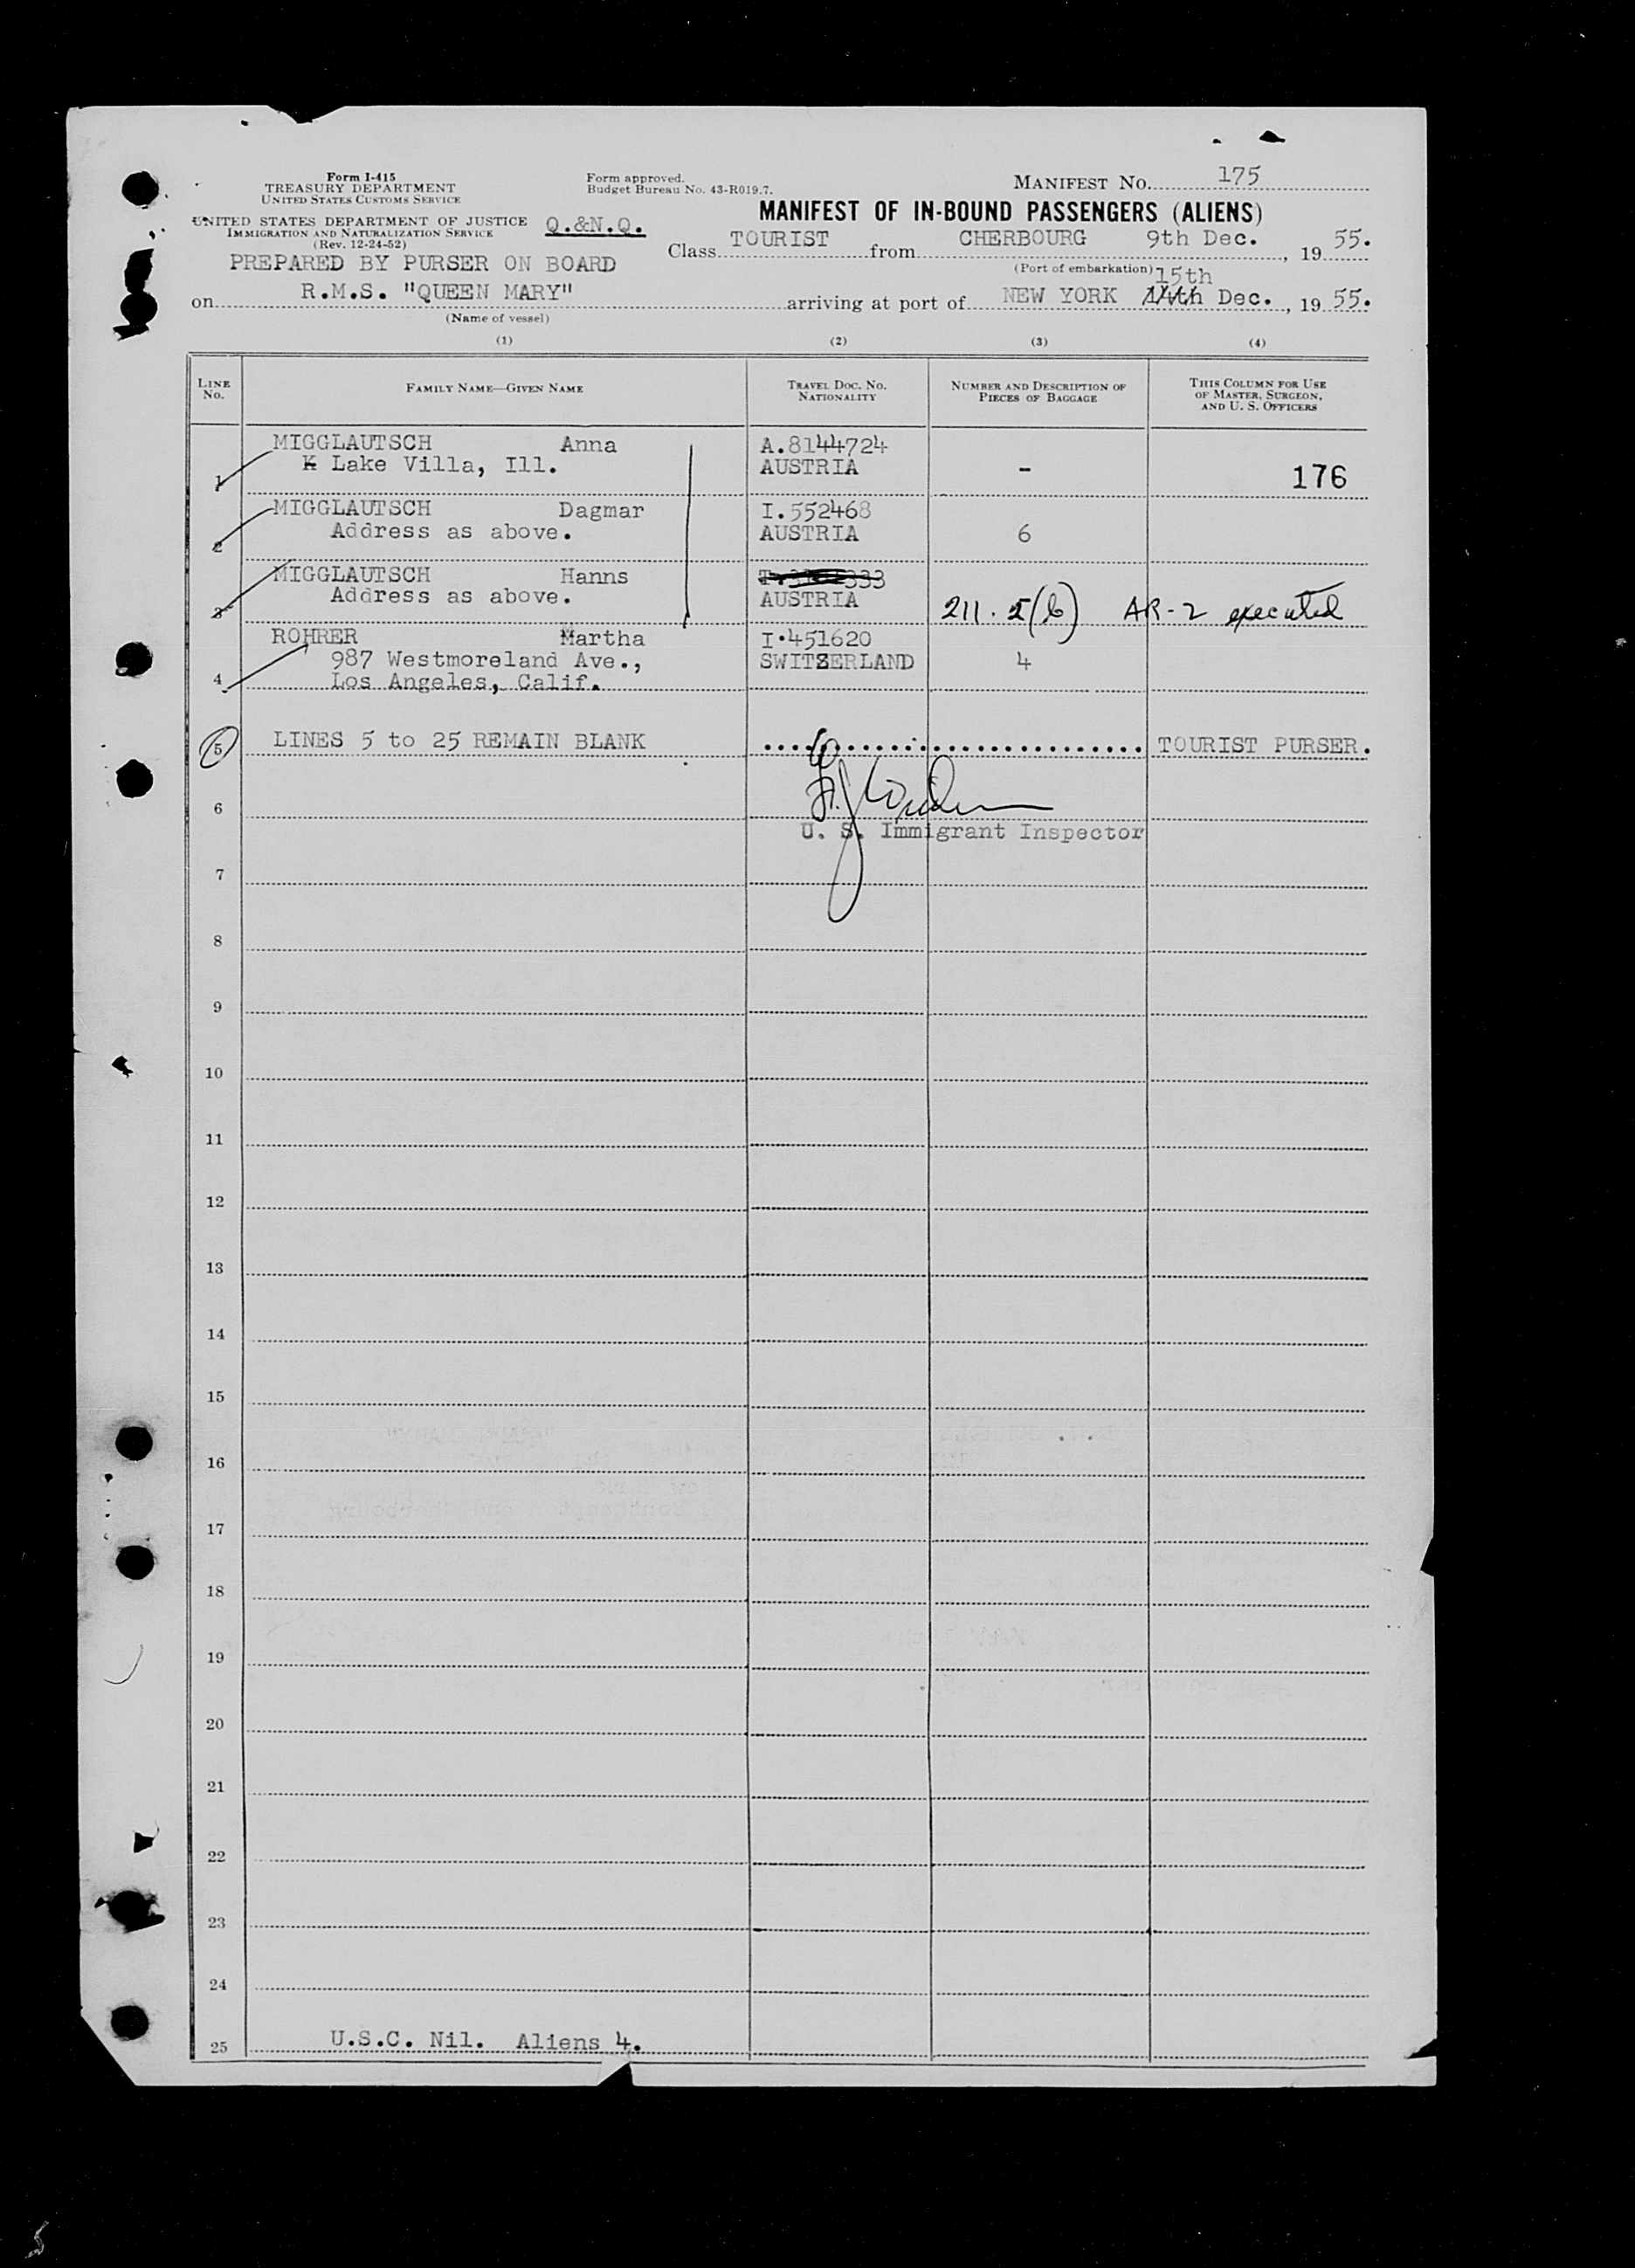 Form I-415
TREASURY DEPARTMENT
UNITED STATES CUSTOMS SERVICE
UNITED STATES DEPARTMENT OF JUSTICE
IMMIGRATION AND NATURALIZATION SERVICE
(Rev. 12-24-52)
Q.&N.Q.
Form approved.
Budget Bureau No. 43-R019.7.
MANIFEST NO. 175
MANIFEST OF IN-BOUND PASSENGERS (ALIENS)
Class TOURIST from CHERBOURG 9th Dec. , 19 55.
(Port of embarkation)
PREPARED BY PURSER ON BOARD
15th
on R.M.S. "QUEEN MARY" arriving at port of NEW YORK 14th Dec. , 19 55.
(Name of vessel)
(1) (2) (3) (4)
LINE No.
FAMILY NAME—GIVEN NAME
TRAVEL DOC. NO. NATIONALITY
NUMBER AND DESCRIPTION OF PIECES OF BAGGAGE
THIS COLUMN FOR USE OF MASTER, SURGEON, AND U. S. OFFICERS
MIGGLAUTSCH Anna A.8144724
Lake Villa, Ill. AUSTRIA -
1 176
MIGGLAUTSCH Dagmar I.552468
Address as above. AUSTRIA 6
2
MIGGLAUTSCH Hanns
Address as above. AUSTRIA
3 211. 5(b) AR-2 executed
ROHRER Martha I.451620
987 Westmoreland Ave., SWITZERLAND 4
4 Los Angeles, Calif.
5 LINES 5 to 25 REMAIN BLANK TOURIST PURSER.
6
U. S. Immigrant Inspector
7
8
9
10
11
12
13
14
15
16
17
18
19
20
21
22
23
24
25 U.S.C. Nil. Aliens 4.